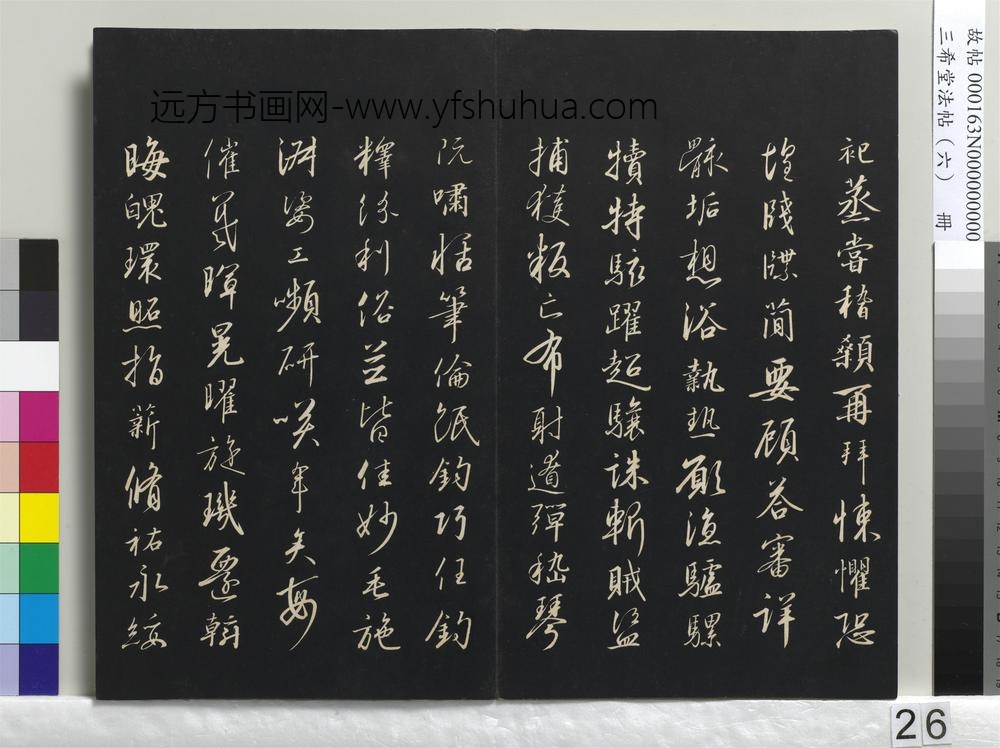 祀蒸嘗稽顙再拜悚懼恐
惶牋牒簡要顧答審詳
骸垢想浴執热願涼驢騾
犢特駭躍超驤誅斬賊盜
捕獲叛亡布射遼彈嵇琴
阮嘯恬筆倫紙鈞巧任釣
釋紛利俗並皆佳妙毛施
淑姿工嚬研咲年矢每
催羲暉晃曜旋璣懸斡
晦魄環照指薪脩祐永綏
远方书画网-www.yfshuhua.com
故帖 000163N000000000
三希堂法帖（六） 冊
26